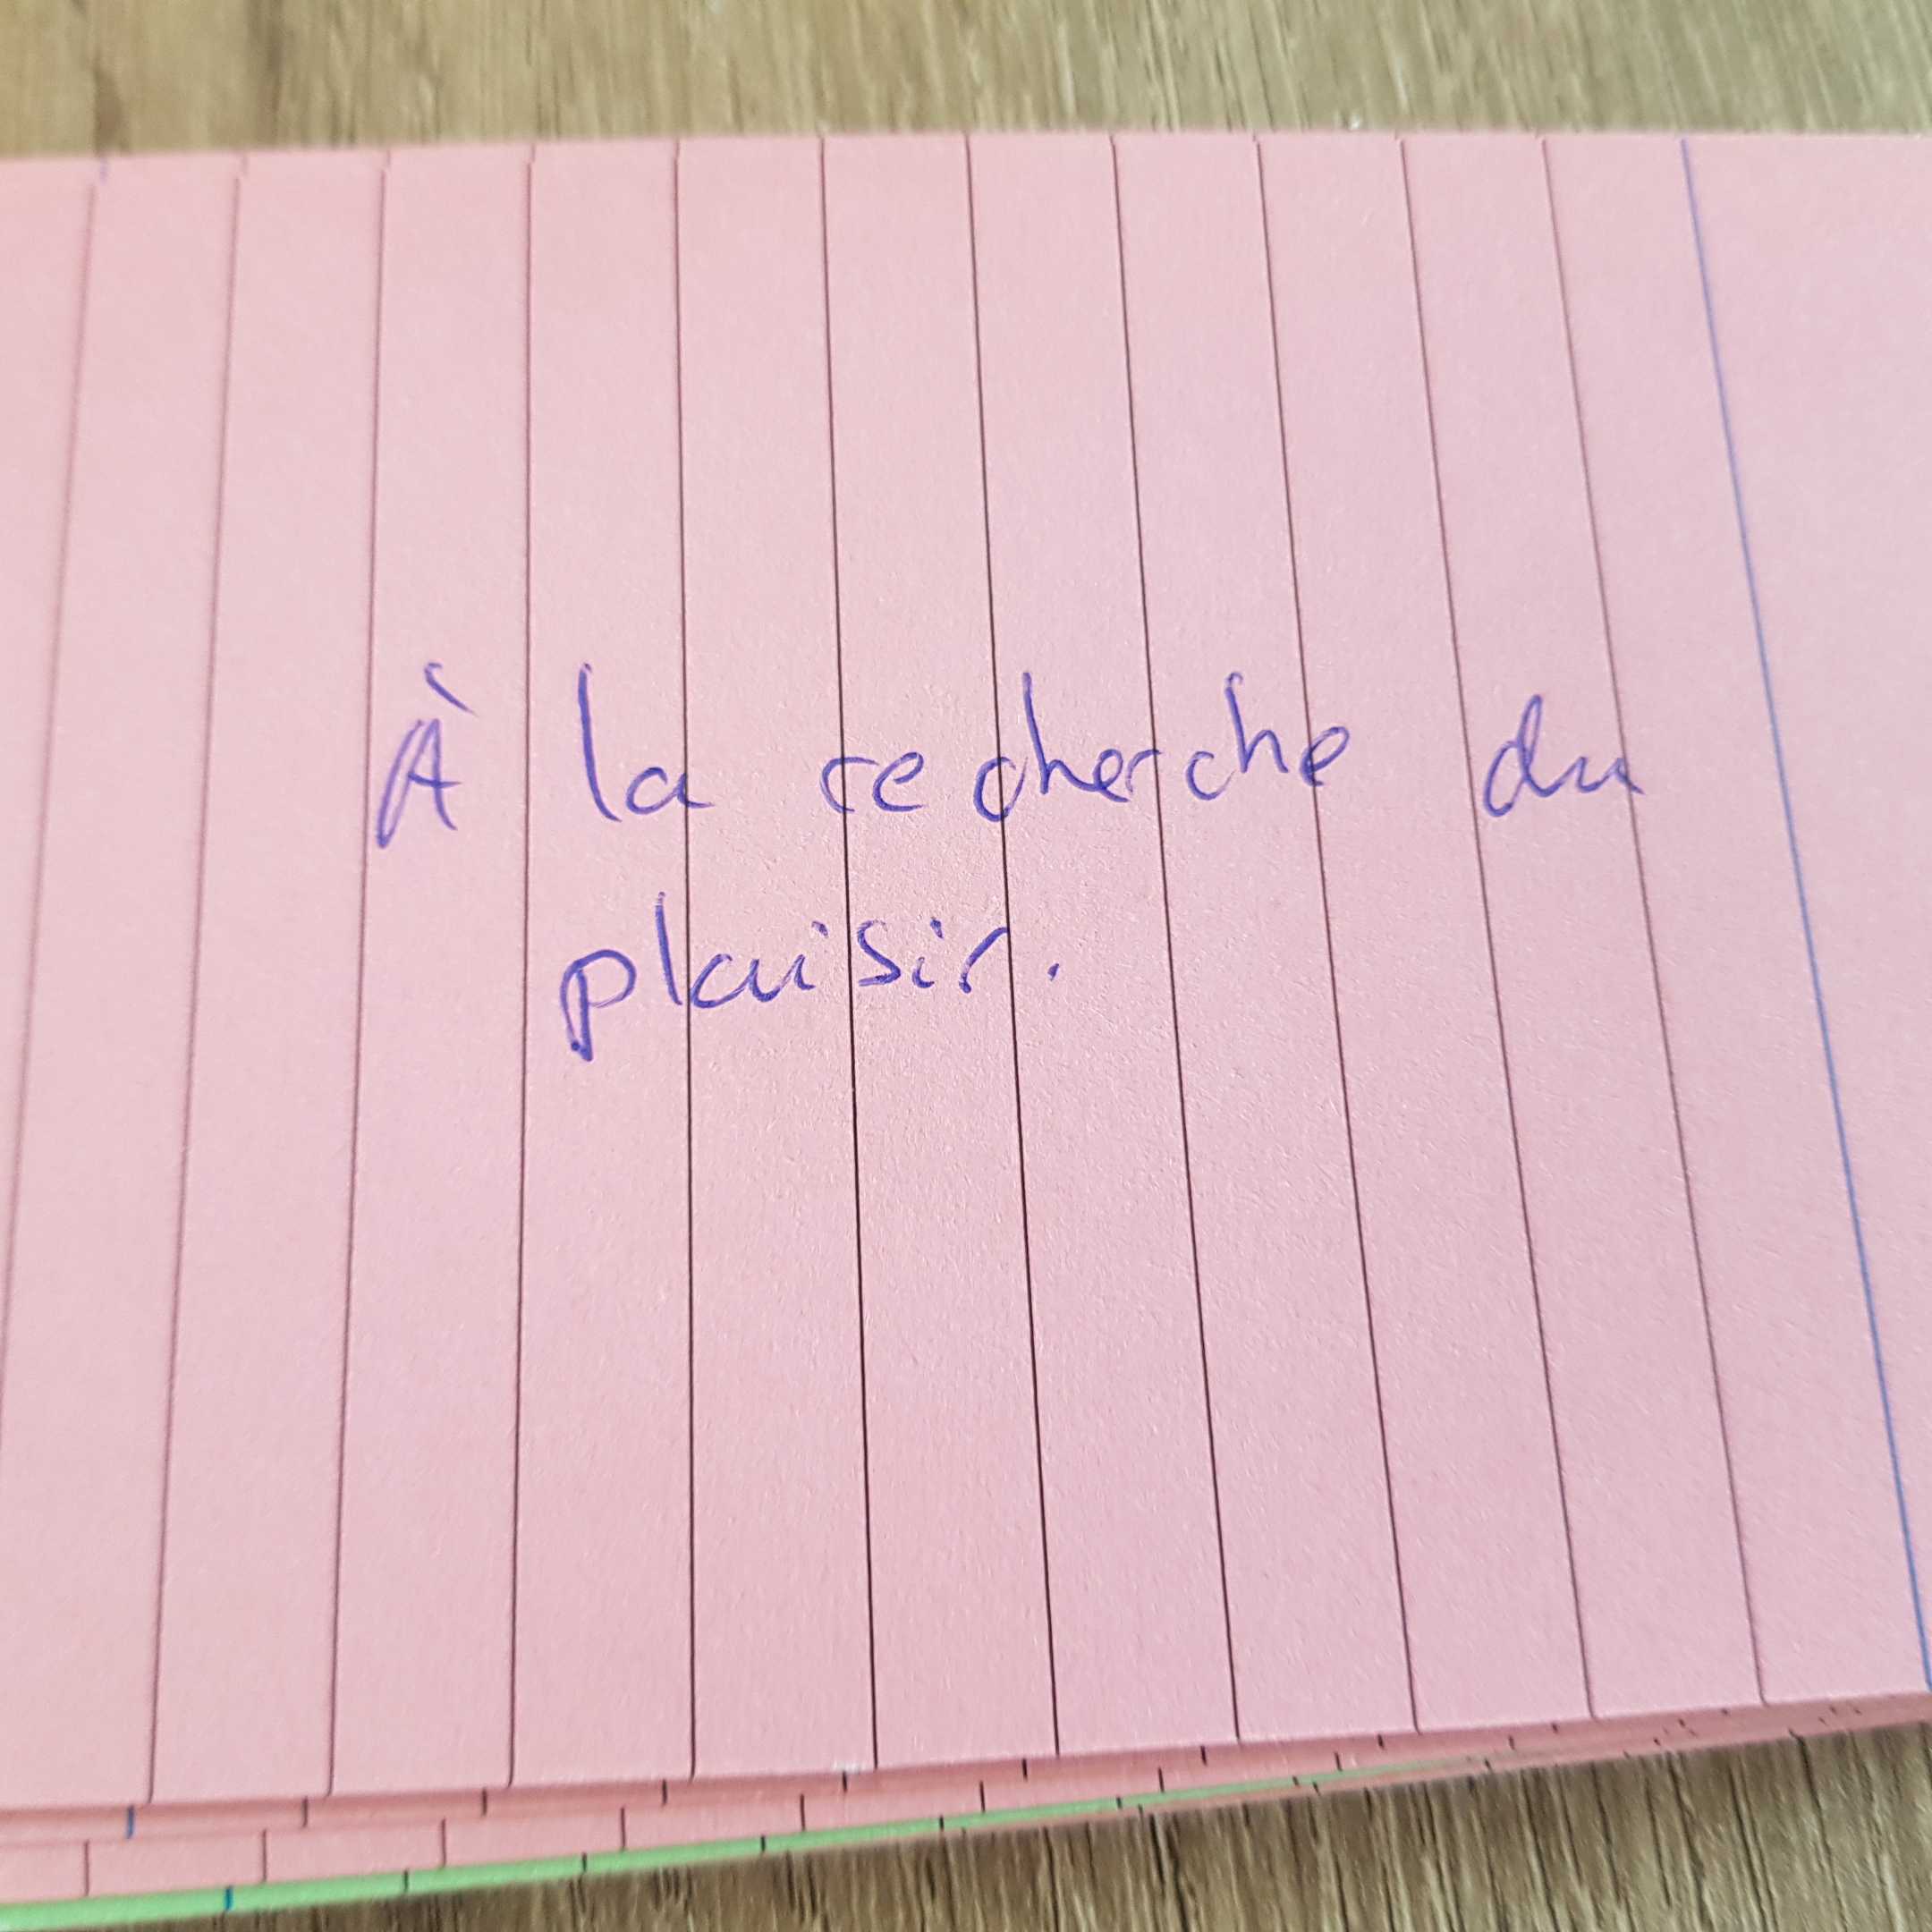 À la recherche du
plaisir.